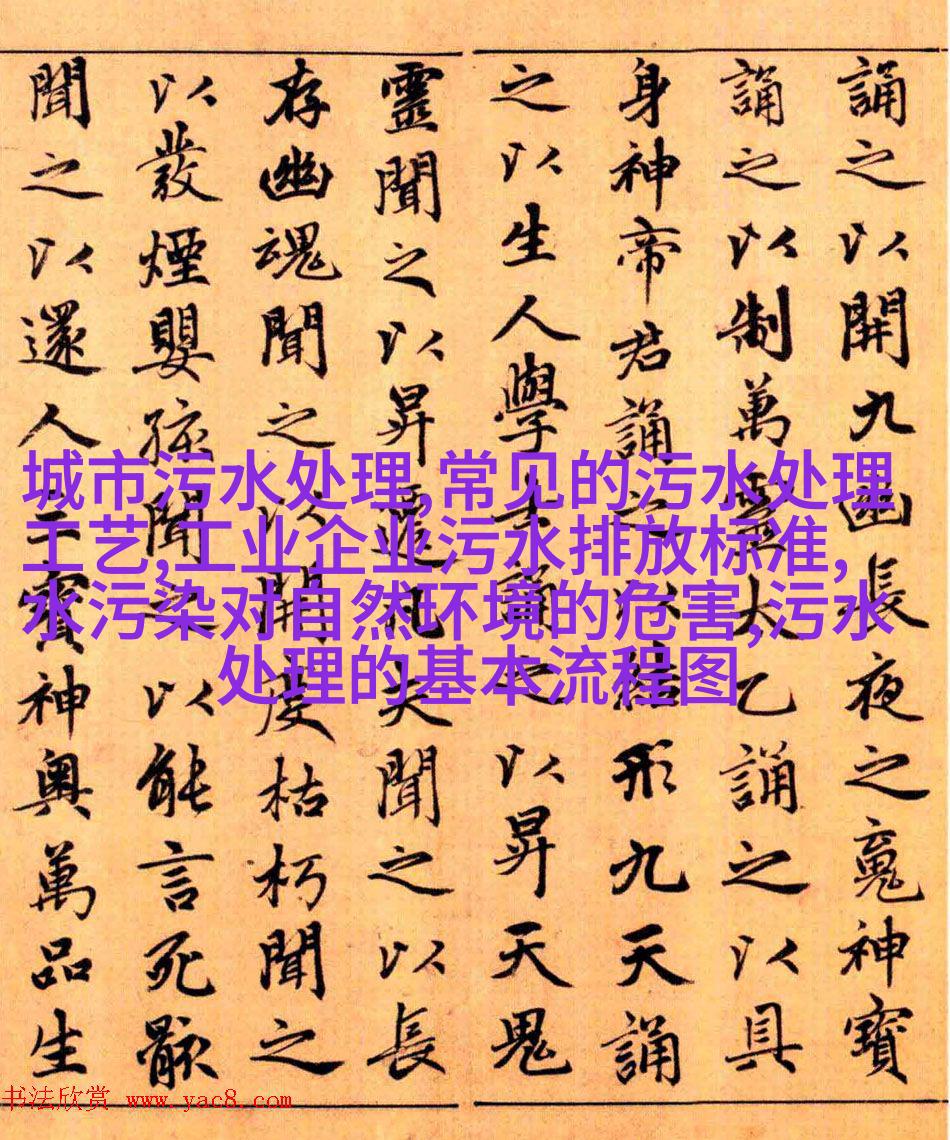 誦之以開九幽長夜之䰟神寶
誦之以制萬靈太乙誦之以具
身神帝君誦之以結形九天誦
之以生人學士誦之以昇天鬼
靈聞之以昇遷凡夫聞之以長
存幽魂聞之以開度枯朽聞之
以發煙嬰孩聞之以能言死骸
聞之以還人三寶神奧萬品生
城市污水处理,常见的污水处理
工艺,工业企业污水排放标准,
水污染对自然环境的危害,污水
处理的基本流程图
书法欣赏 www.yac8.com